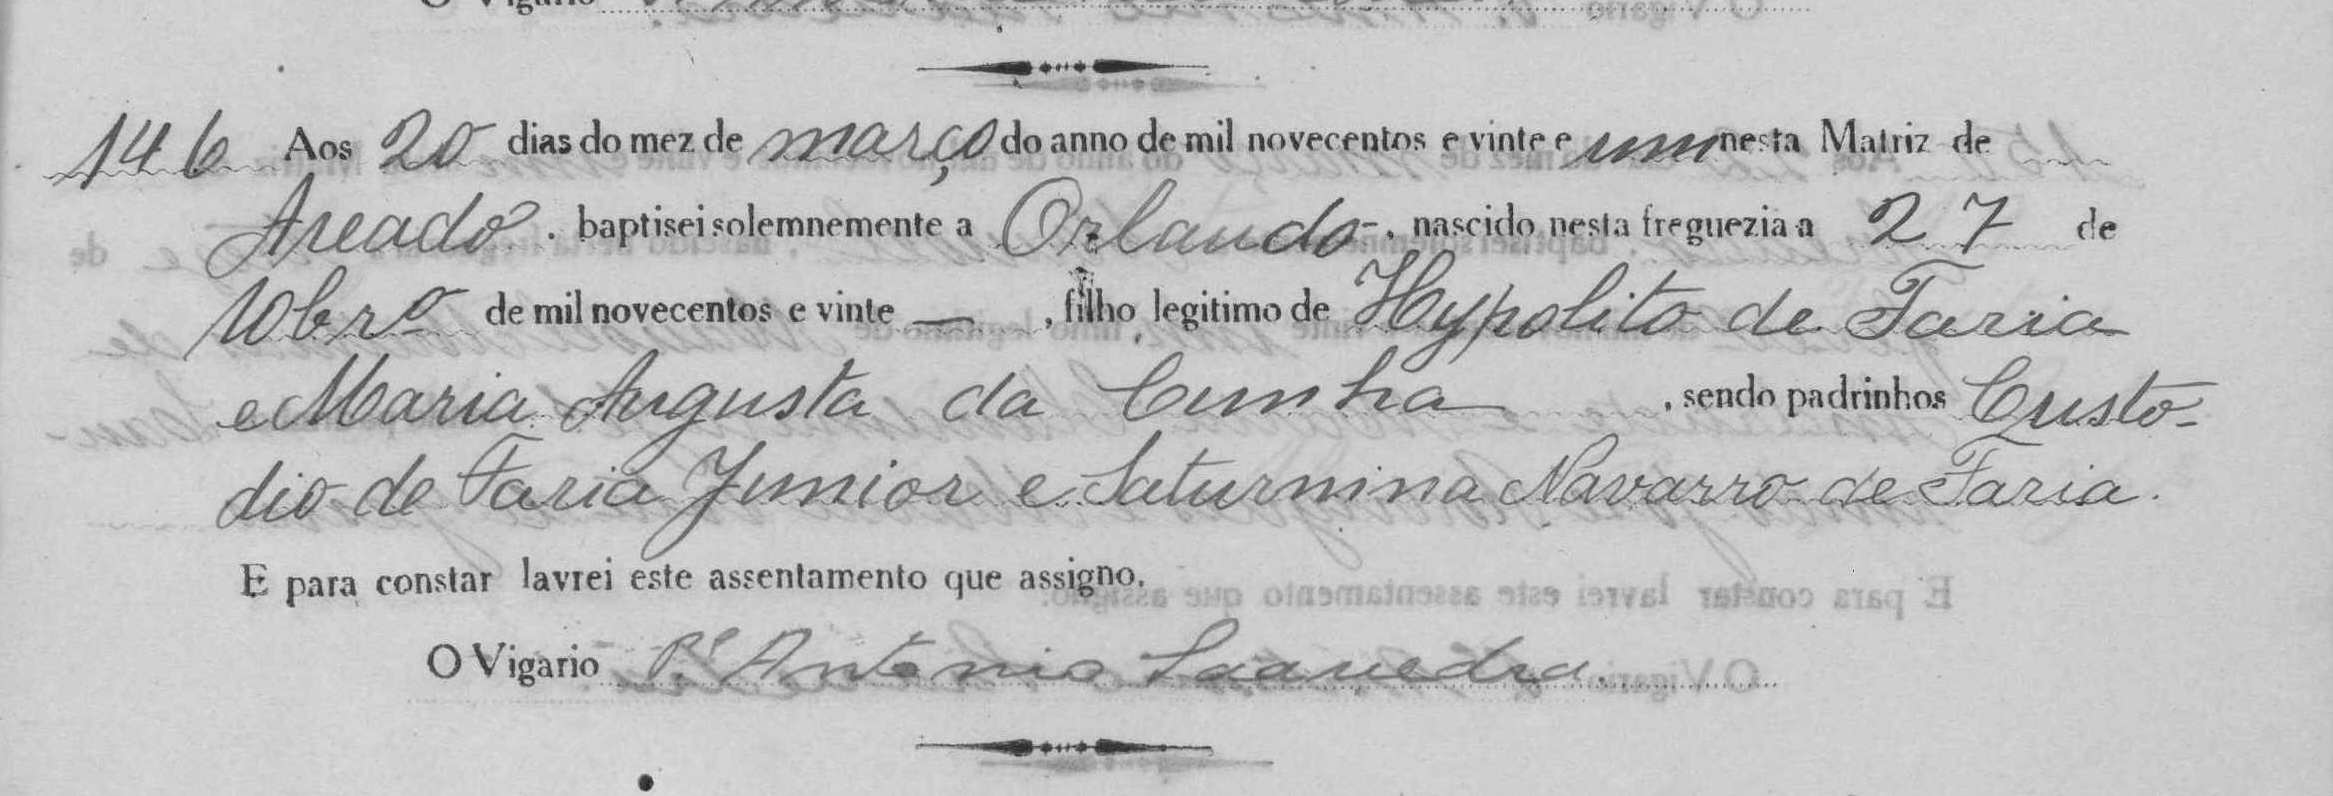 146 Aos 20 dias do mez de março do anno de mil novecentos e vinte e um nesta Matriz de
Areado, baptisei solemnemente a Orlando, nascido nesta freguezia a 27 de
10brº de mil novecentos e vinte —, filho legitimo de Hypolito de Faria
e Maria Augusta da Cunha, sendo padrinhos Custo-
dio de Faria Junior e Saturnina Navarro de Faria.
E para constar lavrei este assentamento que assigno.
O Vigario Pe Antonio Saavedra.